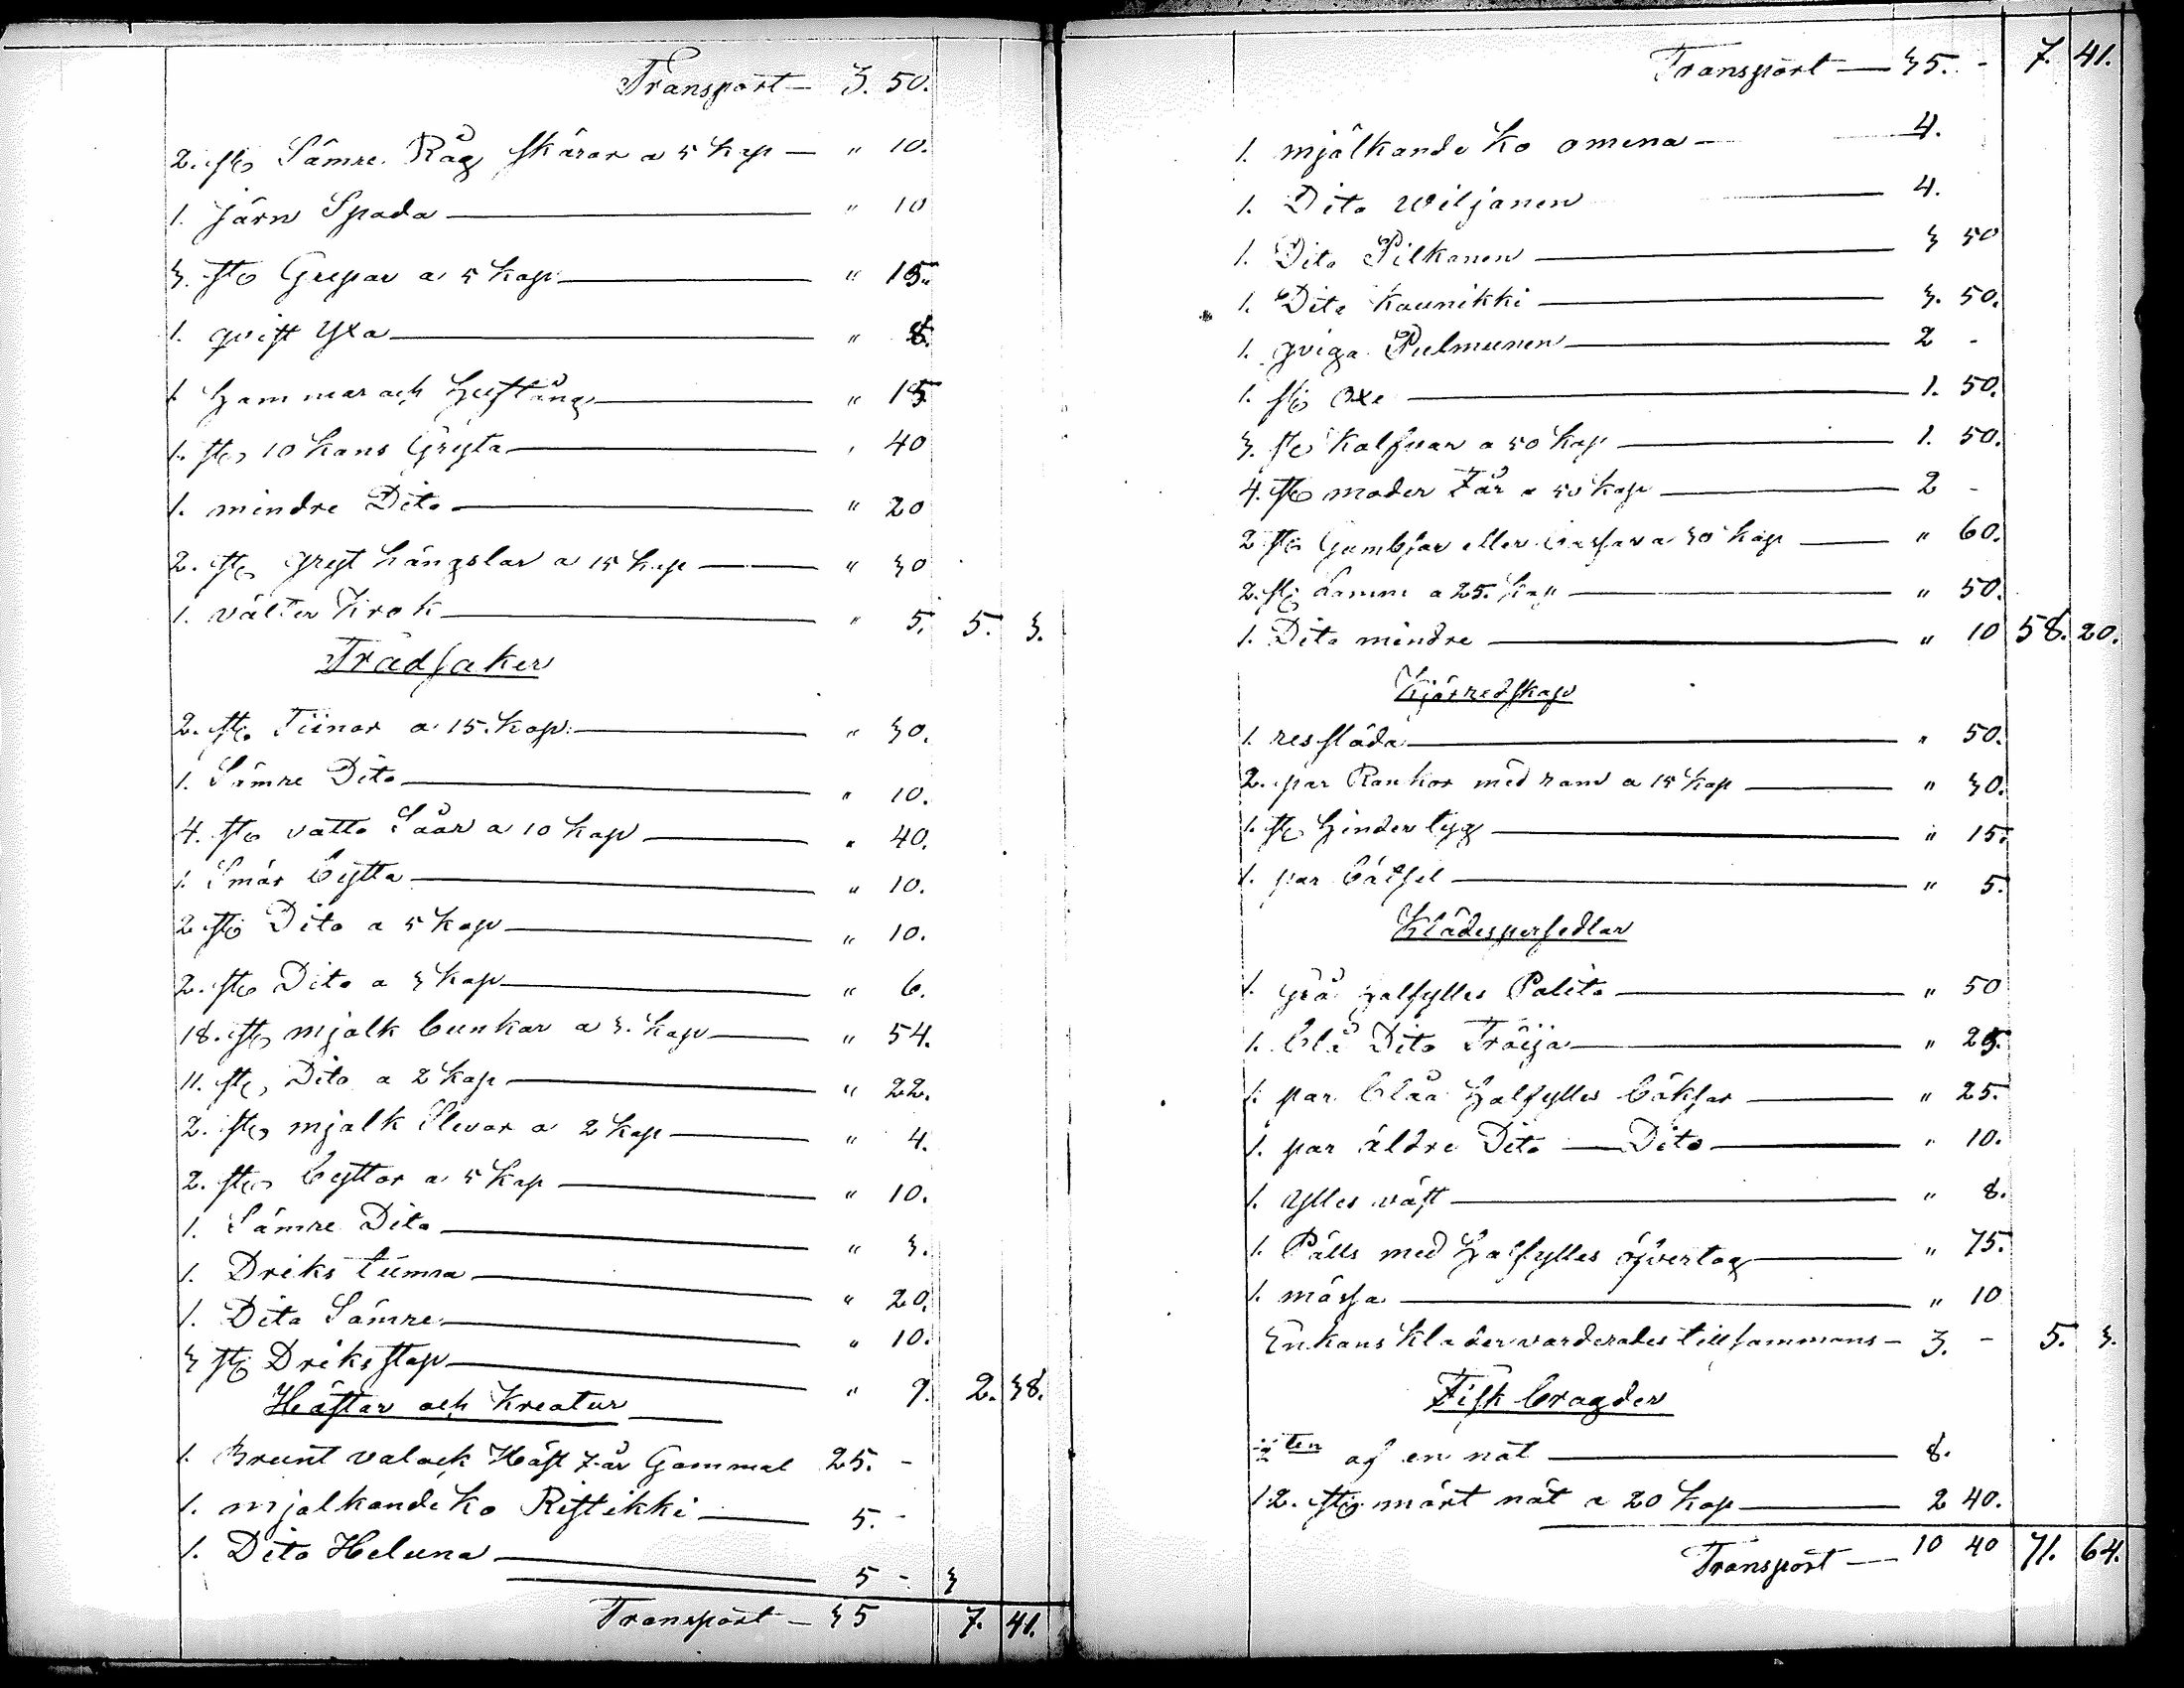 Transport — 3. 50.
2. st. Sämre Råg skäror a 5 kop — " 10.
1. järn Spada — " 10
3. st. Grepar a 5 kop — " 15.
1. qvist yxa — " 8.
1 Hammar och Hoftång — " 15
1. st. 10 kans Gryta — " 40
1. mindre Dito — " 20
2. st. gryt hängslar a 15 kop — " 30
1. välter Krok — " 5. 5. 3.
Trädsaker
2. st. Tiinor a 15. kop. — " 30.
1. Sämre Dito — " 10.
4. st. vatto Såar a 10 kop — " 40.
1. Smör bytta — " 10.
2. st. Dito a 5 kop — " 10.
2. st. Dito a 3 kop — " 6.
18. st. mjalk bunkar a 3. kop — " 54.
11. st. Dito a 2 kop — " 22.
2. st. mjalk Slevar a 2 kop — " 4.
2. st. byttor a 5 kop — " 10.
1. Sämre Dito — " 3.
1. Driks tunna — " 20.
1. Dito Sämre — " 10.
3 st. Driks stop — " 9. 2. 38.
Hästar och Kreatur
1. Brunt valack Häst 7 år Gammal 25. -
1. mjalkande ko Ristikki — 5. -
1. Dito Heluna — 5 - 3
Transport — 35 7. 41.
Transport — 35. - 7. 41.
1. mjölkande ko omena — 4.
1. Dito Wiljanen — 4.
1. Dito Pilkanen — 3 50
1. Dito kaunikki — 3. 50.
1. qviga Pulmunen — 2 -
1. st. oxe — 1. 50.
3. st. kalfvar a 50 kop — 1. 50.
4. st. moder Får a 50 kop — 2 -
2 st. Gumbsar eller a 30 kop — " 60.
2. st. Lamm a 25. kop — " 50.
1. Dito mindre — " 10 58. 20.
Kjörredskap
1. resslåda — " 50.
2. par Rankor med ram a 15 kop — " 30.
1. st. Hindertyg — " 15.
1. par bätsel — " 5.
Klädespersedlar
1. grå halfylles Palito — " 50
1. blå Dito Tröija — " 25.
1. par blåa Halfylles böksor — " 25.
1. par äldre Dito — Dito — " 10.
1. ylles väst — " 8.
1. Pälls med Halfylles öfvertog — " 75.
1. mössa — " 10
Enkans klader varderades tillsammans — 3. - 5. 3.
Fisk bragder
ten af en nöt — 8.
12. st. mört nöt a 20 kop — 2 40.
Transport — 10 40 71. 64.